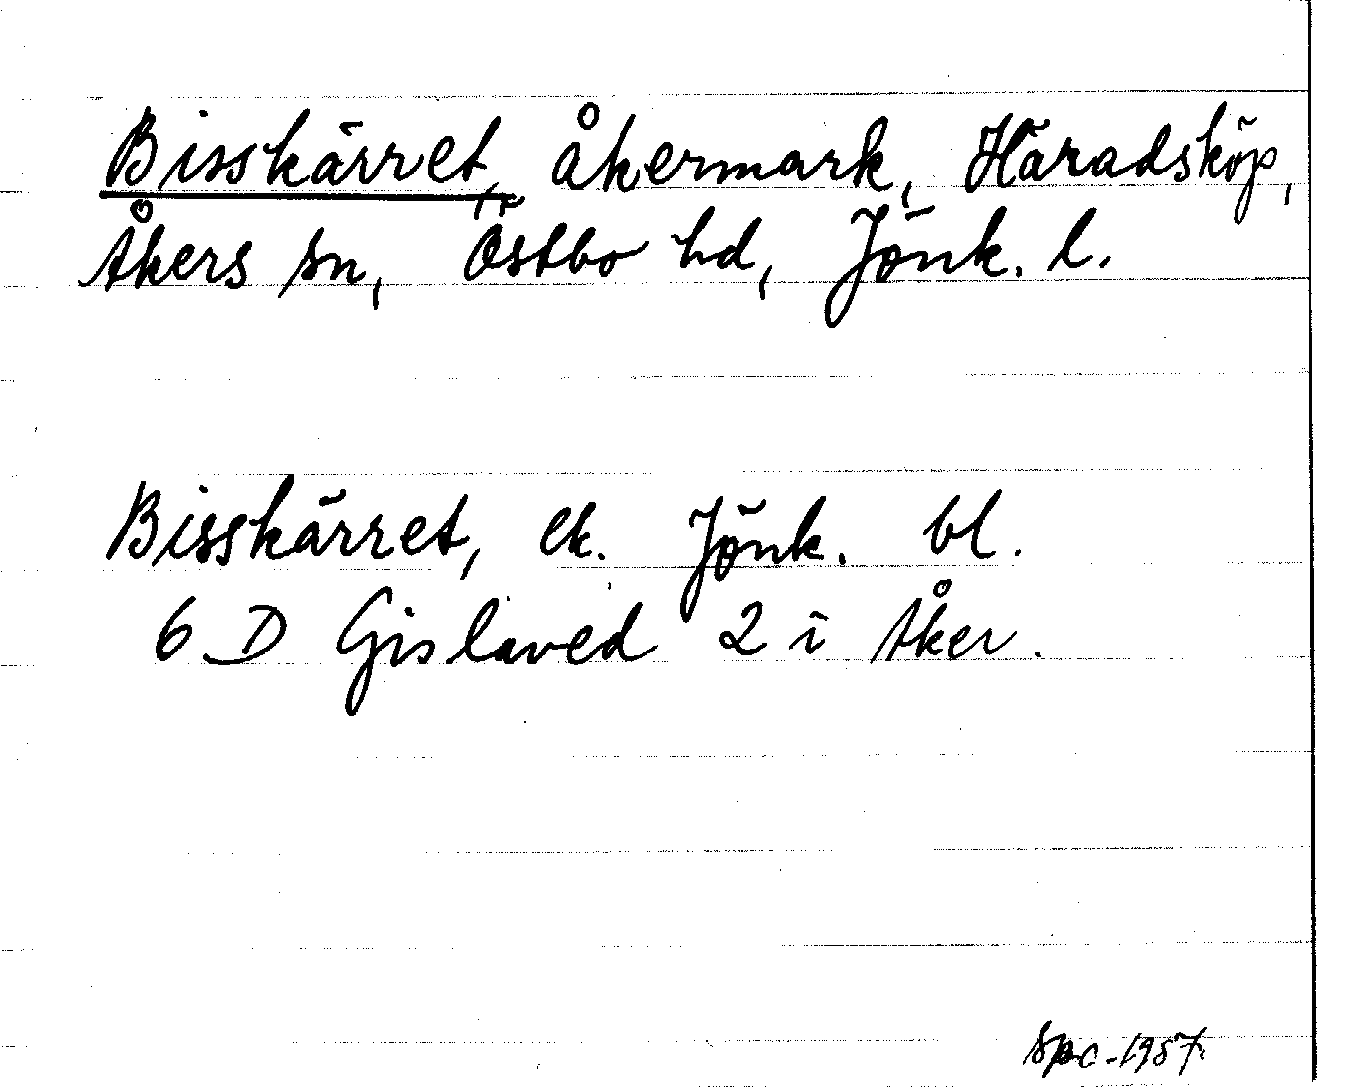 Bisskärret, åkermark, Häradsköp,
Åkers sn, Östbo hd, Jönk. l.
Bisskärret, ek. Jönk. bl.
6 D Gislaved 2 i Åker.
spc - 1957